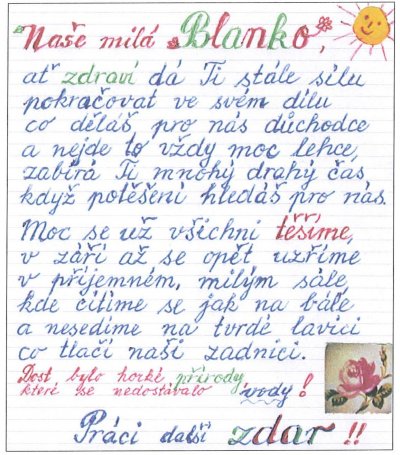 Naše milá Blanko,
ať zdraví dá Ti stále sílu
pokračovat ve svém dílu
co děláš pro nás důchodce
a nejde to vždy moc lehce,
zabírá Ti mnohý drahý čas
když potěšení hledáš pro nás.
Moc se už všichni těšíme,
v září až se opět uzříme
v příjemném, milým sále
kde cítíme se jak na bále
a nesedíme na tvrdé lavici
co tlačí naši zadnici.
Dost bylo horké přírody,
které se nedostávalo vody!
Práci další zdar!!